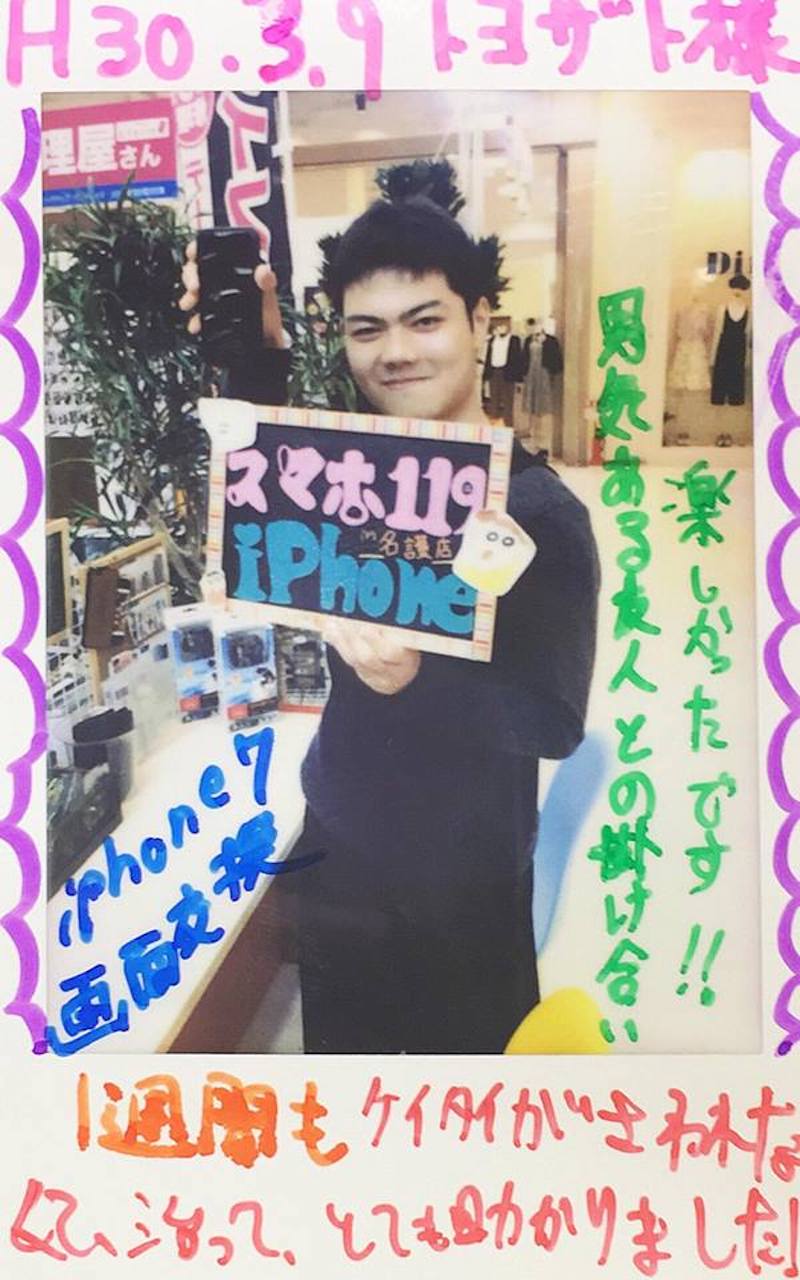 H30.3.9 トヨザト様
理屋さん
スマホ119
in名護店
iPhone
Di
男気ある友人との掛け合い
楽しかったです!!
iphone7
画面交換
1週間も ケイタイがさわれな
くて、治って、とても助かりました!